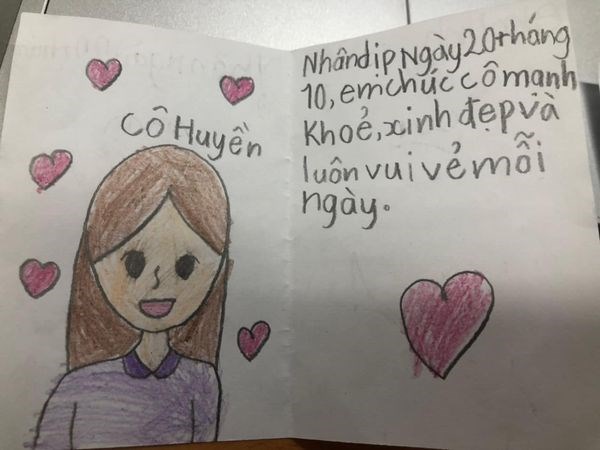 Cô Huyền
Nhân dịp Ngày 20 tháng
10, em chúc cô mạnh
Khoẻ, xinh đẹp và
luôn vui vẻ mỗi
ngày.